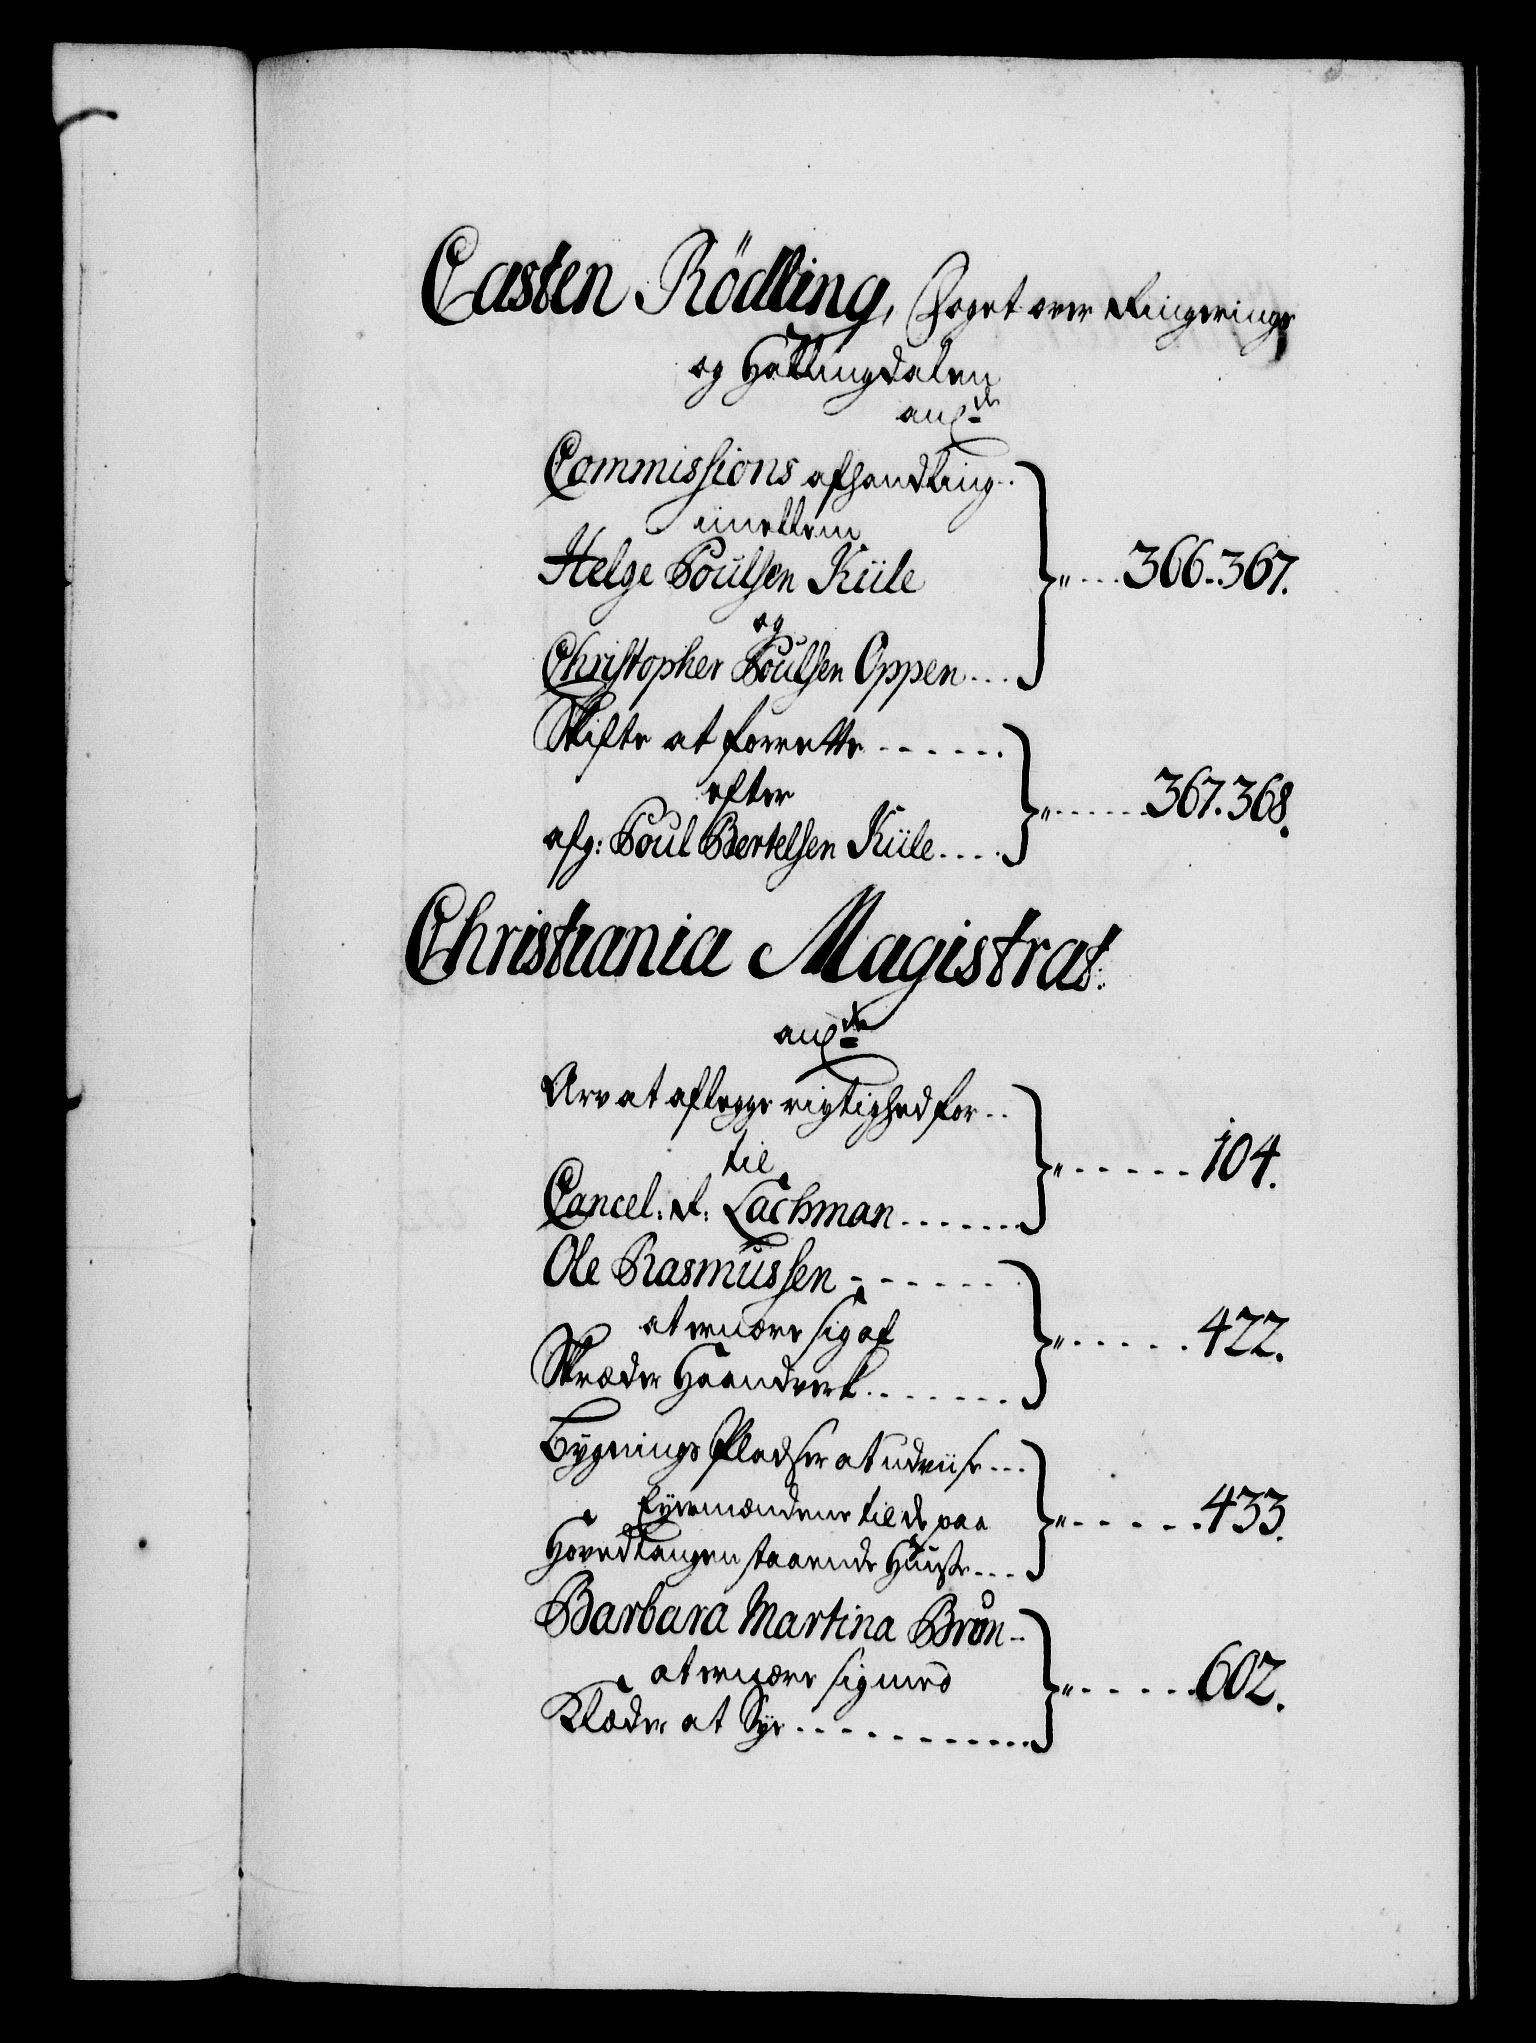 Casten Rödling, Foget over Ringerings
og Hallingdalen
angde
Commissions afhandling..
imellem
Helge Poulsen Kiile
og
Christopher Poulsen Oppen... 366..367.
Skifte at forrette.......
efter
afg: Poul Bertelsen Kiile.... 367.368.
Christiania Magistrat:
angde
Arv at aflegge rigtighed for..
til
Cancel: R: Lachman....... 104.
Ole Rasmussen.......
at ernære sig af
Skræder Haandverk....... 422.
Bygnings Pladser at udviise...
Eyermændene til de paa
Hovedtangen staaende Huuse... 433.
Barbara Martina Brun..
at ernære sig med
Klæder at Sye............ 602.